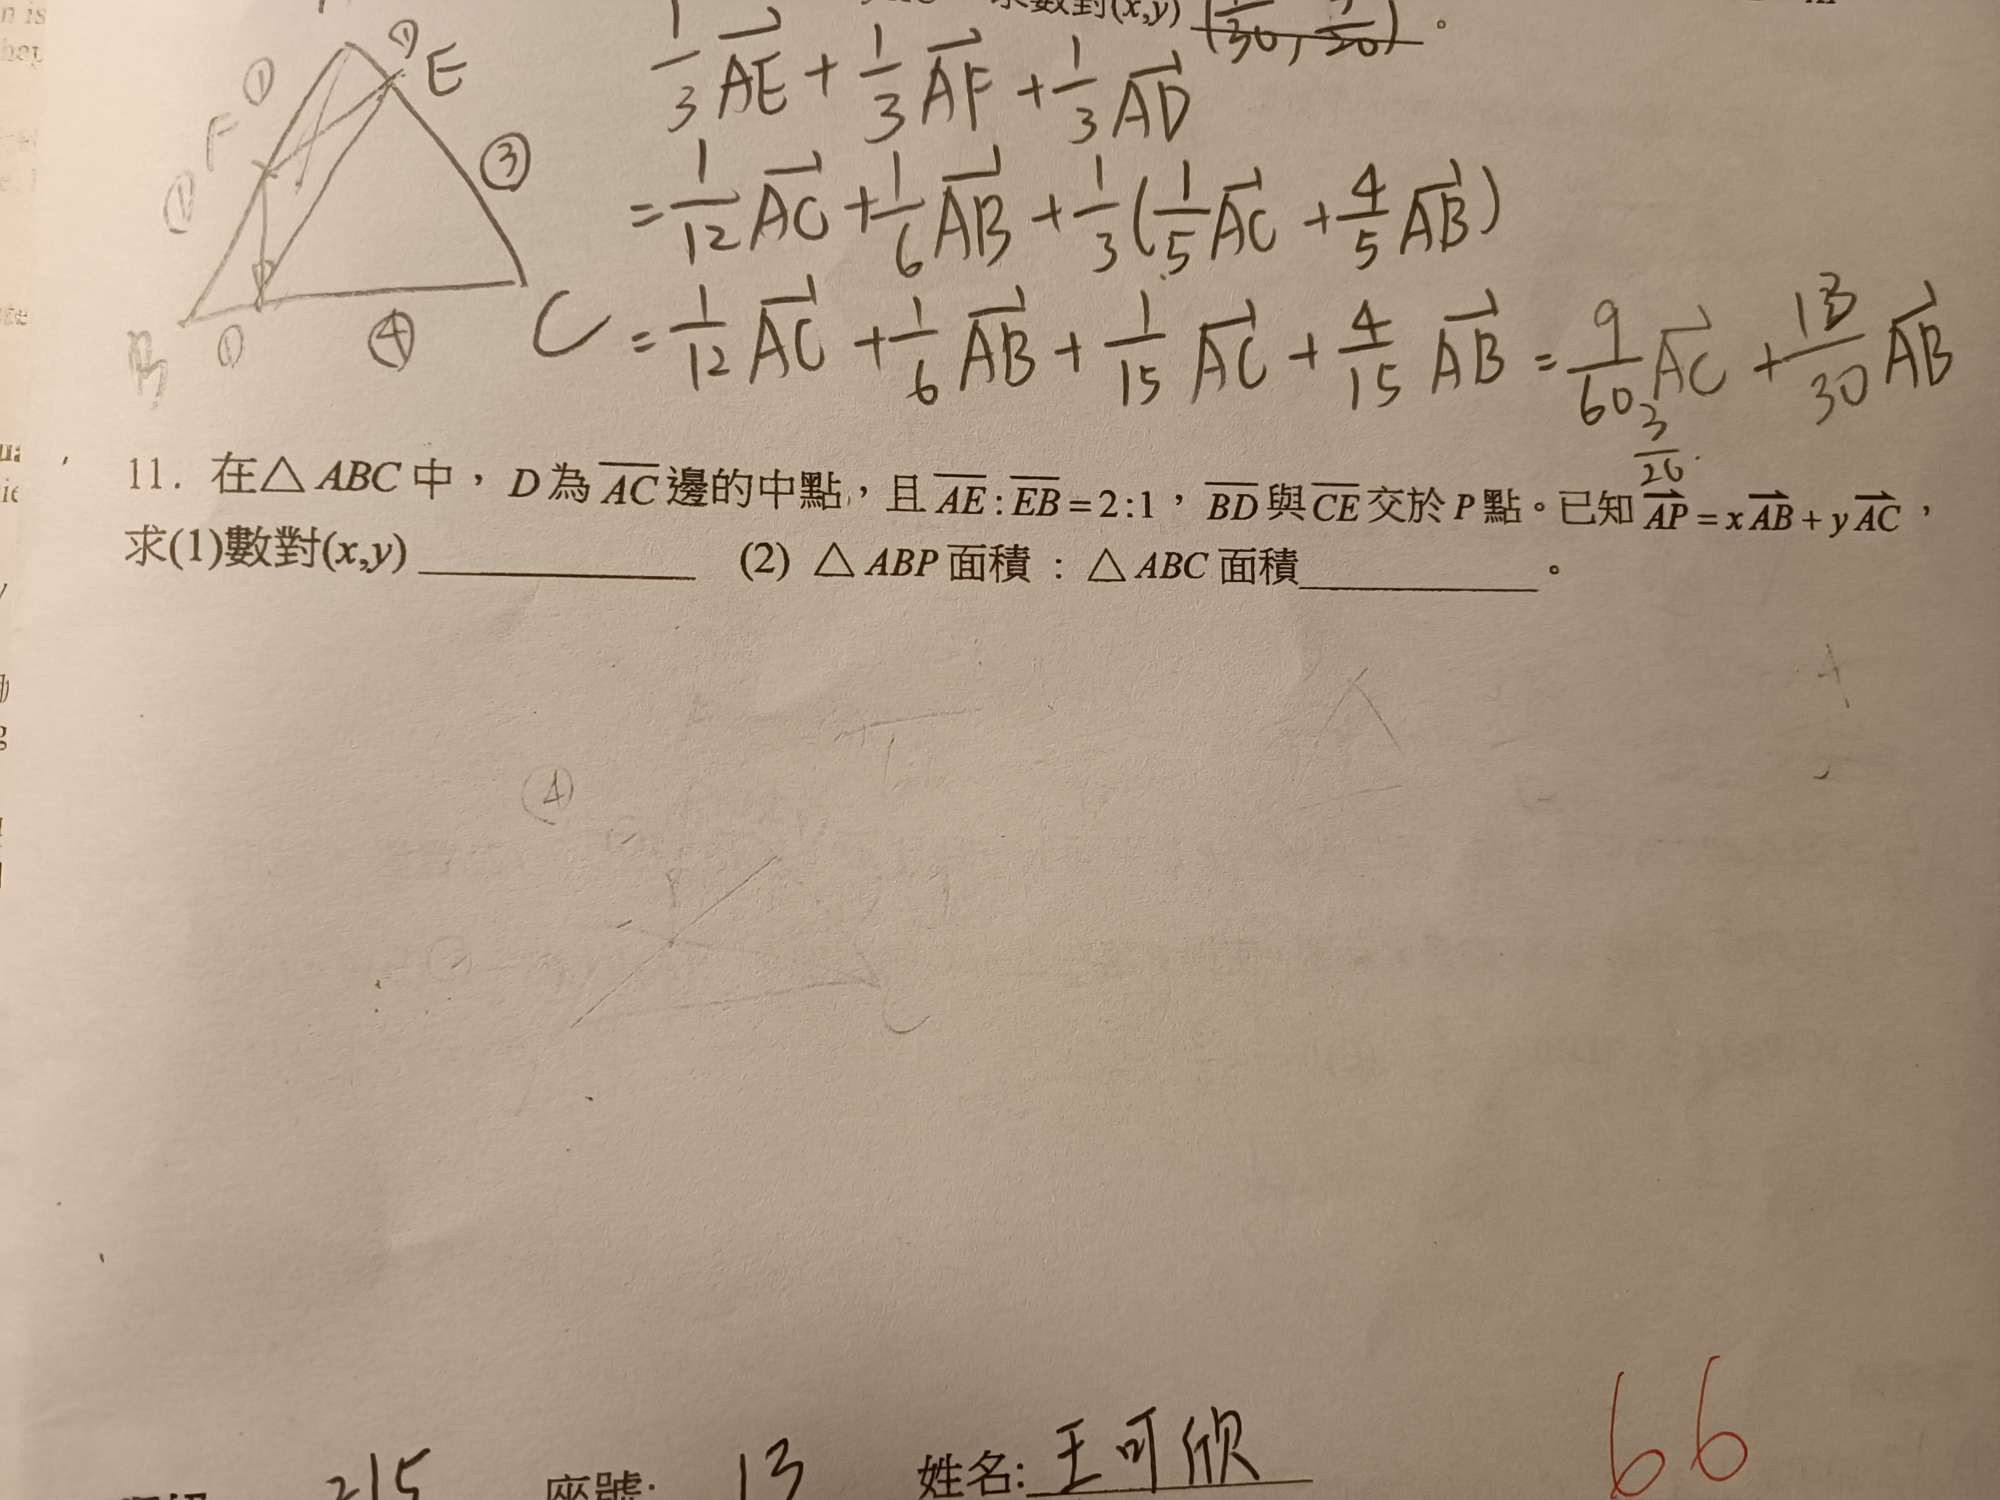 求數對(x,y)
1/3 AE + 1/3 AF + 1/3 AD
= 1/12 AC + 1/6 AB + 1/3 (1/5 AC + 4/5 AB)
= 1/12 AC + 1/6 AB + 1/15 AC + 4/15 AB = 9/60 AC + 13/30 AB
3/20
① E
① F
① ③
B ① D ④ C
11. 在△ABC中，D為AC邊的中點，且AE:EB=2:1，BD與CE交於P點。已知AP=xAB+yAC，
求(1)數對(x,y)__________ (2) △ABP面積：△ABC面積__________。
④
215 座號: 13 姓名: 王可欣
66